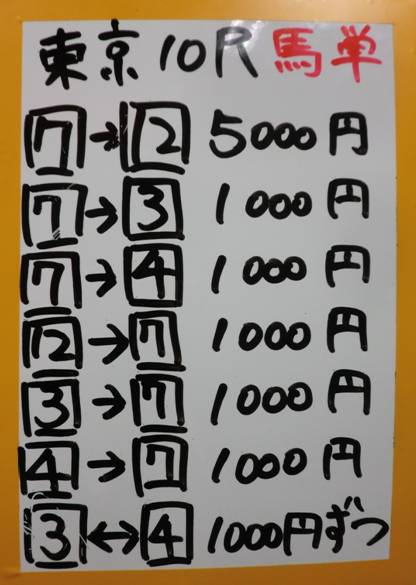 東京10R 馬単
7→12 5000円
7→3 1000円
7→4 1000円
12→7 1000円
3→7 1000円
4→7 1000円
3↔4 1000円ずつ